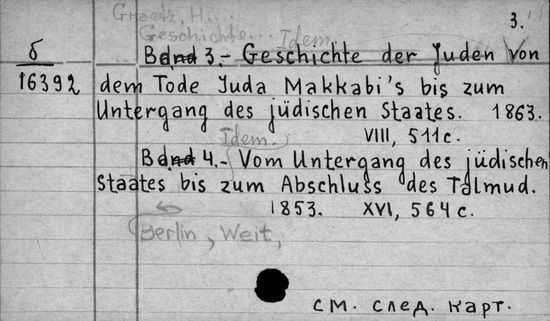 Graetz, H.. 3.
Geschichte... Idem
б Band 3.- Geschichte der Juden von
16392 dem Tode Juda Makkabi's bis zum
Untergang des jüdischen Staates. 1863.
VIII, 511 c.
Idem.
Band 4.- Vom Untergang des jüdischen
Staates bis zum Abschluss des Talmud.
1853. XVI, 564 c.
Berlin, Weit,
см. след. карт.